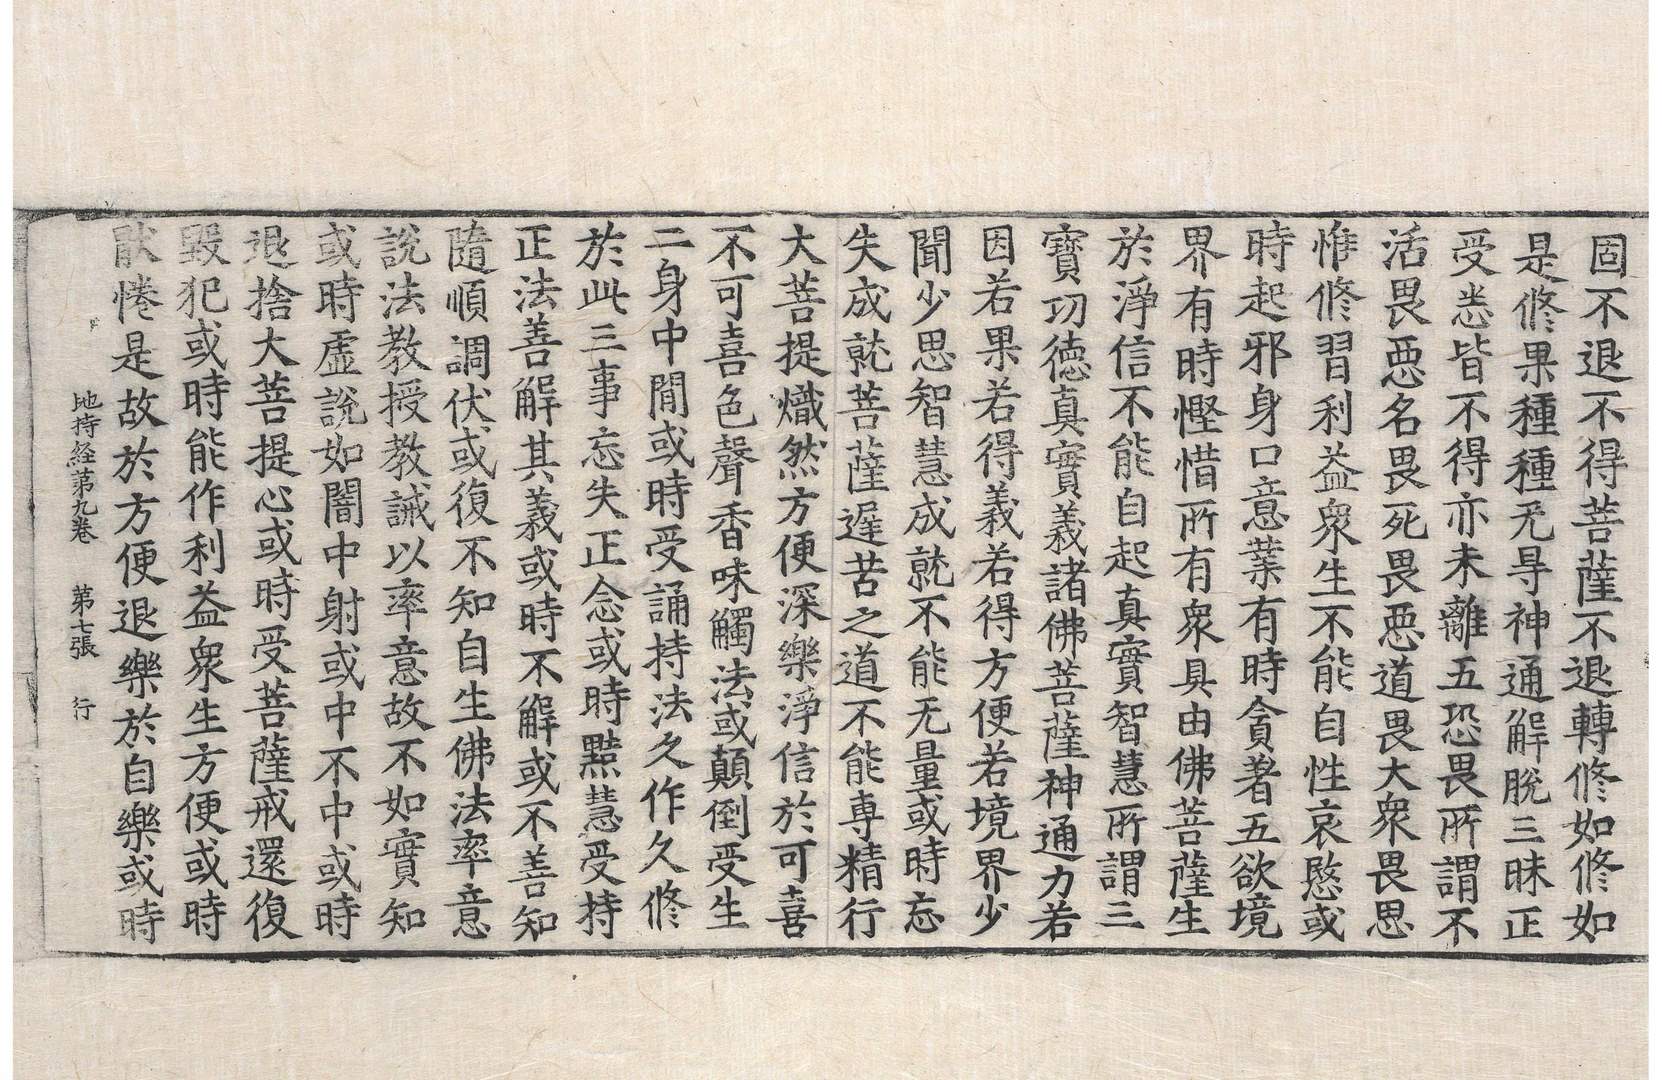 固不退不得菩薩不退轉修如修如
是修果種種无㝵神通解脫三昧正
受悉皆不得亦未離五恐畏所謂不
活畏惡名畏死畏惡道畏大衆畏思
惟修習利益衆生不能自性哀愍或
時起邪身口意業有時貪著五欲境
界有時慳惜所有衆具由佛菩薩生
於淨信不能自起真實智慧所謂三
寶功德真實義諸佛菩薩神通力若
因若果若得義若得方便若境界少
聞少思智慧成就不能无量或時忘
失成就菩薩遲苦之道不能專精行
大菩提熾然方便深樂淨信於可喜
不可喜色聲香味觸法或顛倒受生
二身中間或時受誦持法久作久修
於此三事忘失正念或時黠慧受持
正法善解其義或時不解或不善知
隨順調伏或復不知自生佛法率意
說法教授教誡以率意故不如實知
或時虛說如闇中射或中不中或時
退捨大菩提心或時受菩薩戒還復
毀犯或時能作利益衆生方便或時
猒惓是故於方便退樂於自樂或時
地持経第九卷 第七張 行